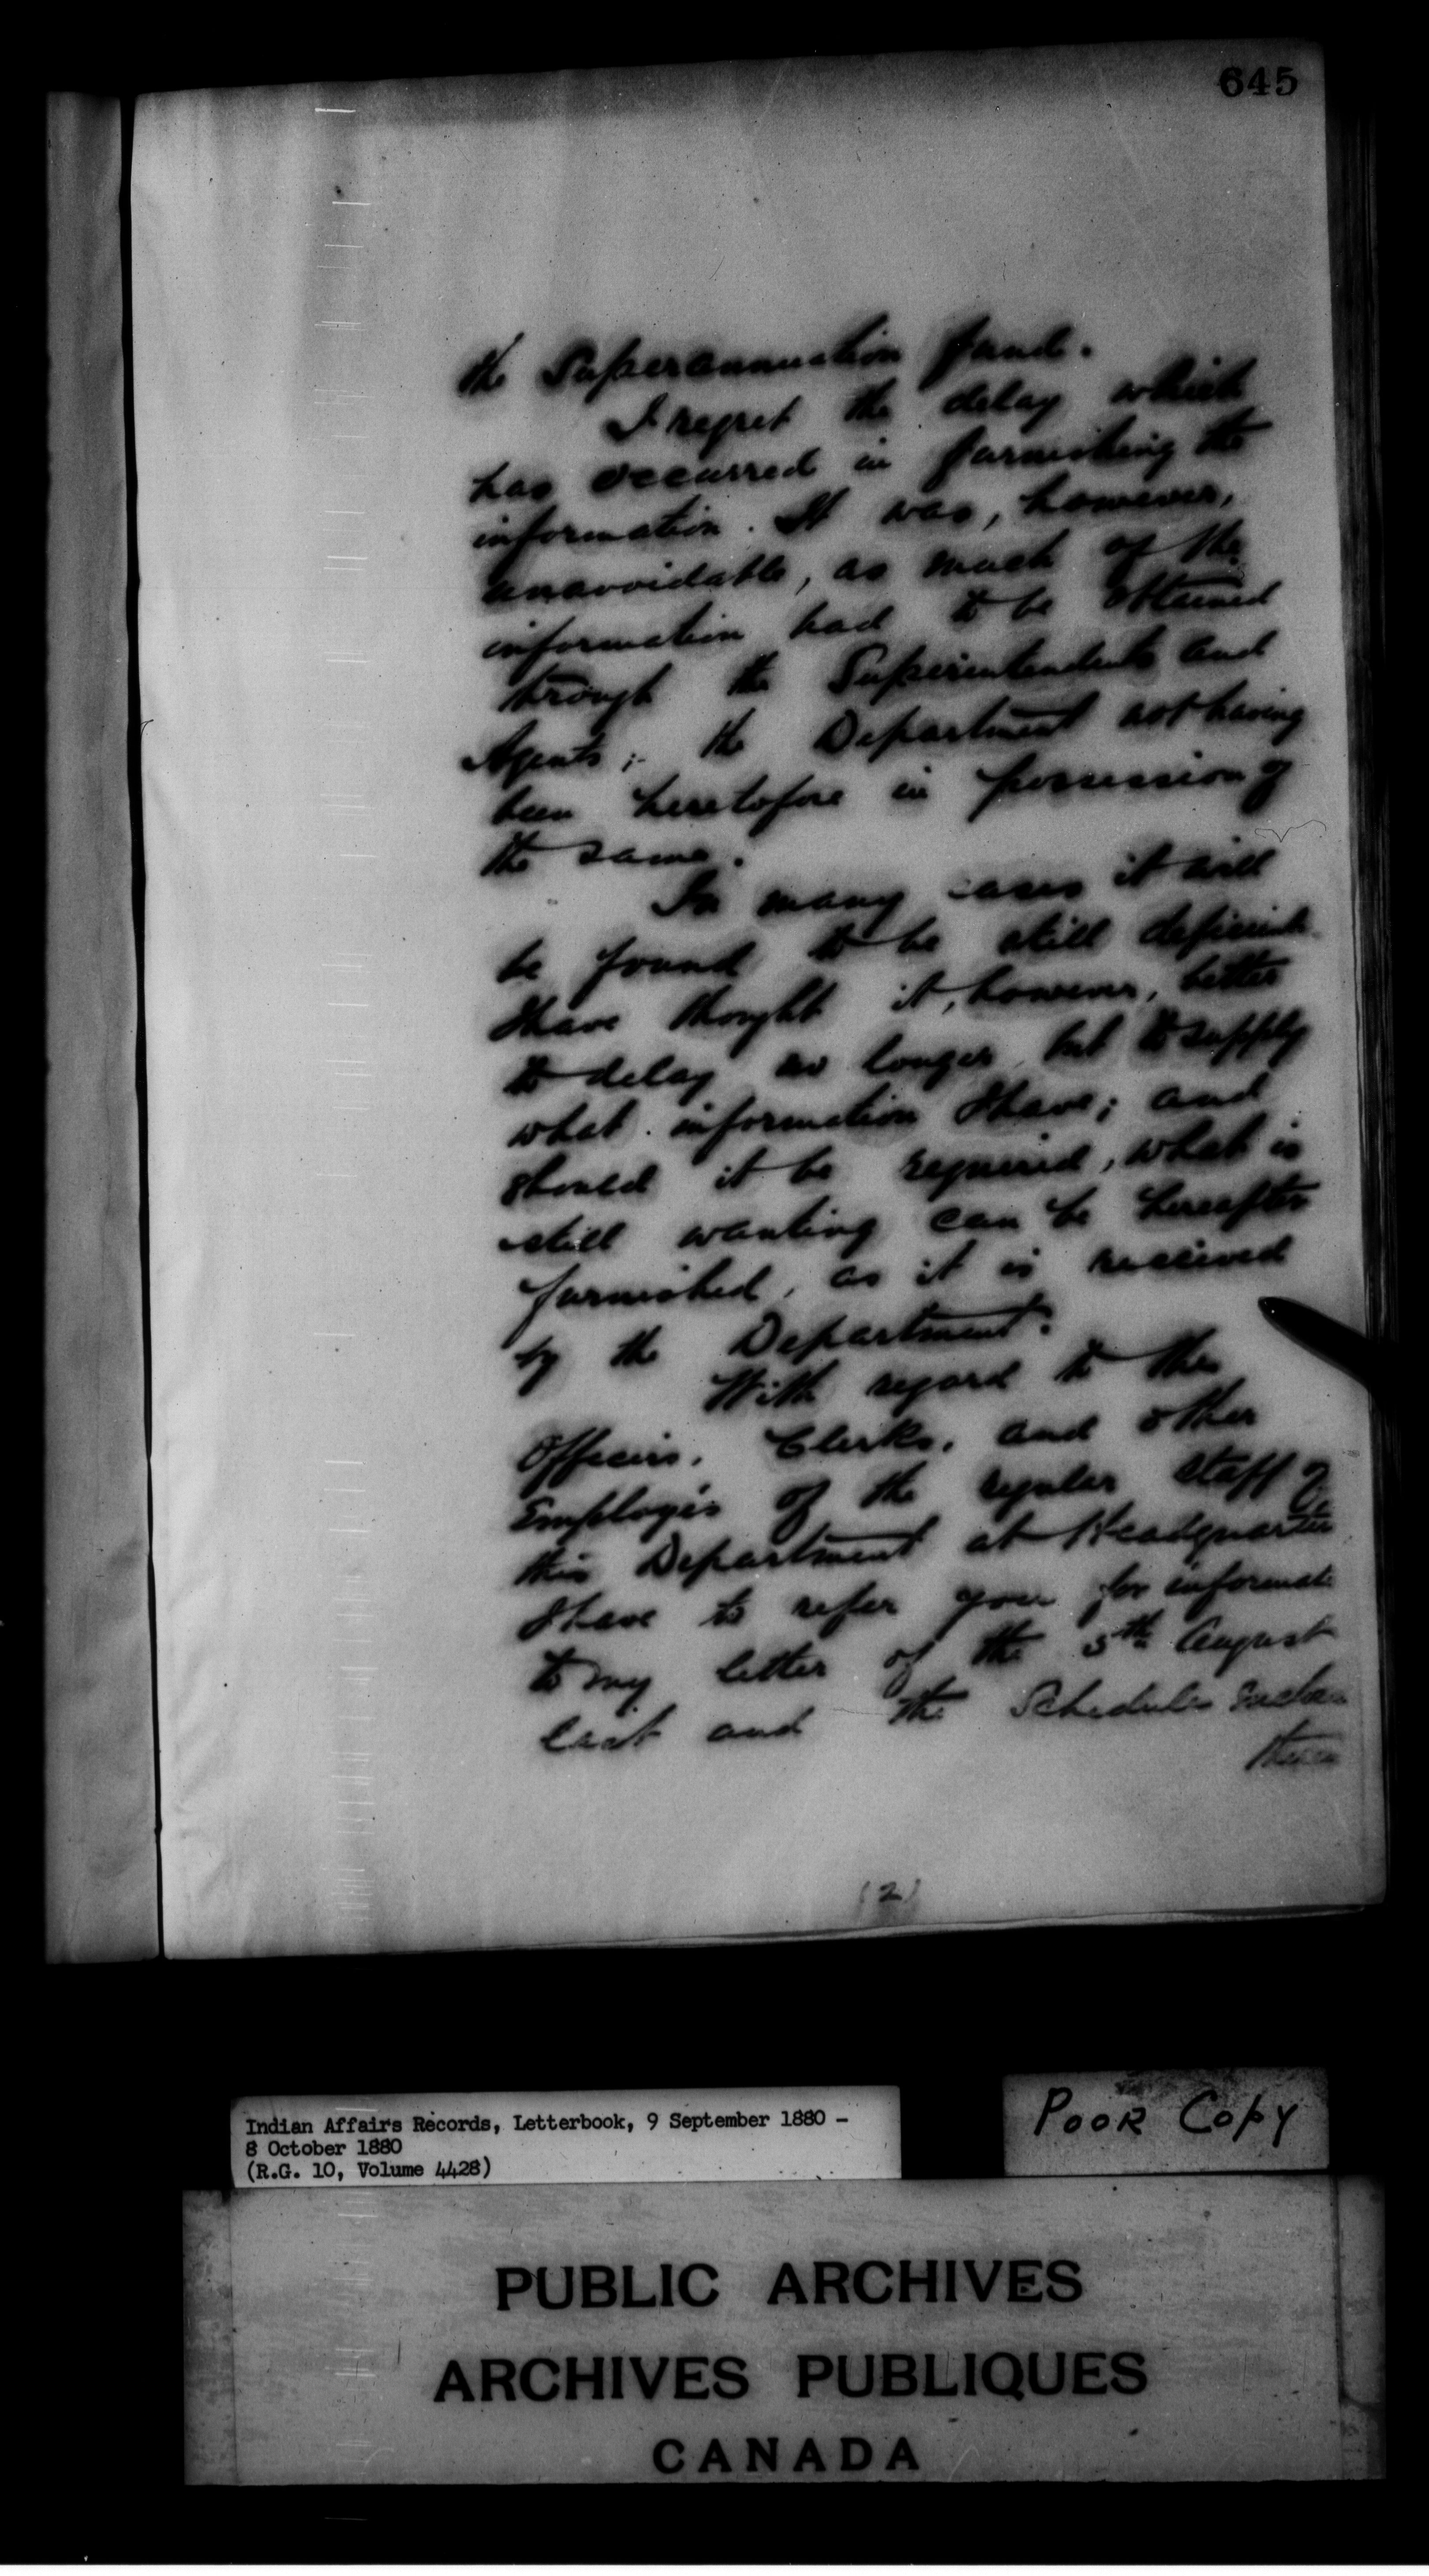 645
the Superannuation fund.
I regret the delay which
has occurred in furnishing the
information. It was, however,
unavoidable, as much of the
information had to be obtained
through the Superintendents and
Agents; the Department not having
been heretofore in possession of
the same.
In many cases it will
be found to be still deficient
I have thought it, however, better
to delay no longer but to supply
what information I have; and
should it be required, what is
still wanting can be hereafter
furnished, as it is received
by the Department.
With regard to the
Officers, Clerks, and other
Employés of the regular staff of
this Department at Headquarters
I have to refer you for informati
to my letter of the 5th August
last and the Schedule
(2)
Indian Affairs Records, Letterbook, 9 September 1880 -
8 October 1880
(R.G. 10, Volume 4428)
POOR COPY
PUBLIC ARCHIVES
ARCHIVES PUBLIQUES
CANADA